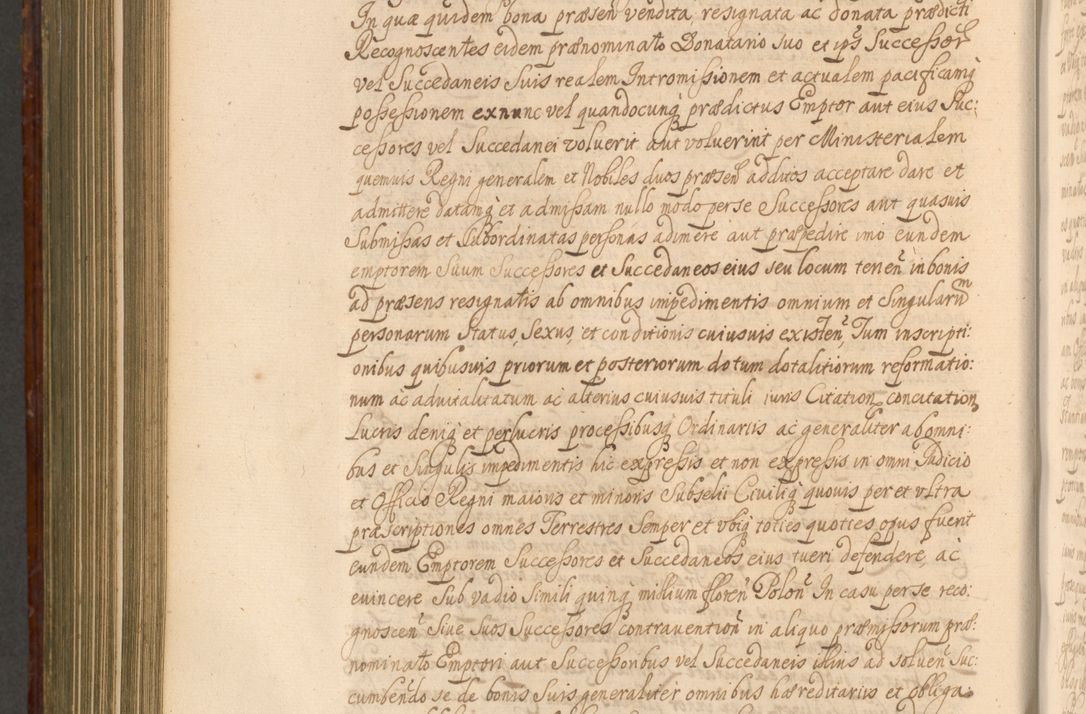 In quæ quidem bona præsen̄ vendita, resignata ac donata prædicti
Recognoscentes eidem prænominato Donatario suo et ips̄ Successor̄
vel Succedaneis Suis realem Intromissionem et actualem pacificamq̢
possessionem exnunc vel quandocunq̢ prædictus Emptor aut eius Suc:
cessores vel Succedanei voluerit aut voluerint per Ministerialem
quemuis Regni generalem et Nobiles duos præsen̄ additos acceptare dare et
admittere datamq̢ et admissam nullo modo per se Successores aut quasuis
Submissas et Subordinatas personas adimere aut præpedire imo eundem
emptorem Suum Successores et Succedaneos eius seu locum tenen̄ in bonis
ad præsens resignatis ab omnibus impedimentis omnium et Singularum
personarum Status, Sexus, et conditionis cuiusuis existen̄, Tum inscripti:
onibus quibusuis priorum et posteriorum dotum dotalitiorum reformatio:
num ac aduitalitatum ac alterius cuiusuis tituli iuris Citation̄ concitation̄
Lucris deniq̢ et perlucris processibusq̢ Ordinariis ac generaliter ab omni:
bus et Singulis impedimentis hic expressis et non expressis in omni Iudicio
et Officio Regni maioris et minoris Subselii Ciuiliq̢ quouis per et vltra
præscriptiones omnes Terrestres Semper et vbiq̢ toties quoties opus fuerit
eundem Emptorem Successores et Succedaneos eius tueri defendere ac
euincere Sub vadio Simili quinq̢ millium floren̄ Polon̄ In casu per se reco:
gnoscen̄ Siue Suos Successores contrauention̄ in aliquo præmissorum præ:
nominato Emptori aut Successoribus vel Succedaneis illius ad soluen̄ Suc:
cumbendo se de bonis Suis generaliter omnibus hæreditariis et obliga: